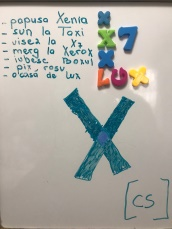 - papusa Xenia
- sun la Taxi
- visez la X7
- merg la Xerox
- iubesc Boxul
- pix roșu
- o casă de lux
X
X7
LUX
X
[CS]